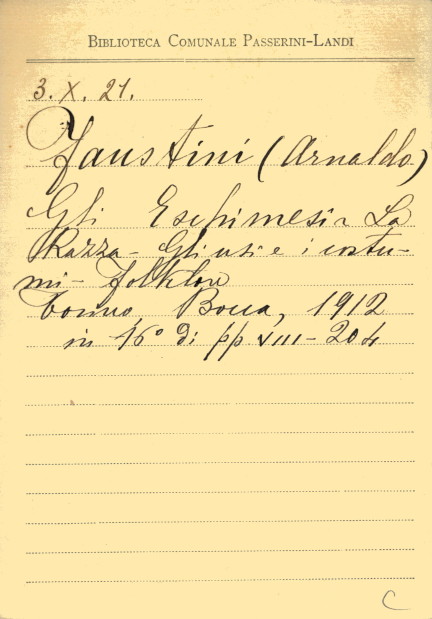 BIBLIOTECA COMUNALE PASSERINI-LANDI
3. X. 21.
Faustini (Arnaldo)
Gli Eschimesi - La
Razza - Gli usi e i costu-
mi - Folklore
Torino Bocca, 1912
in 16° di pp VIII - 204
C